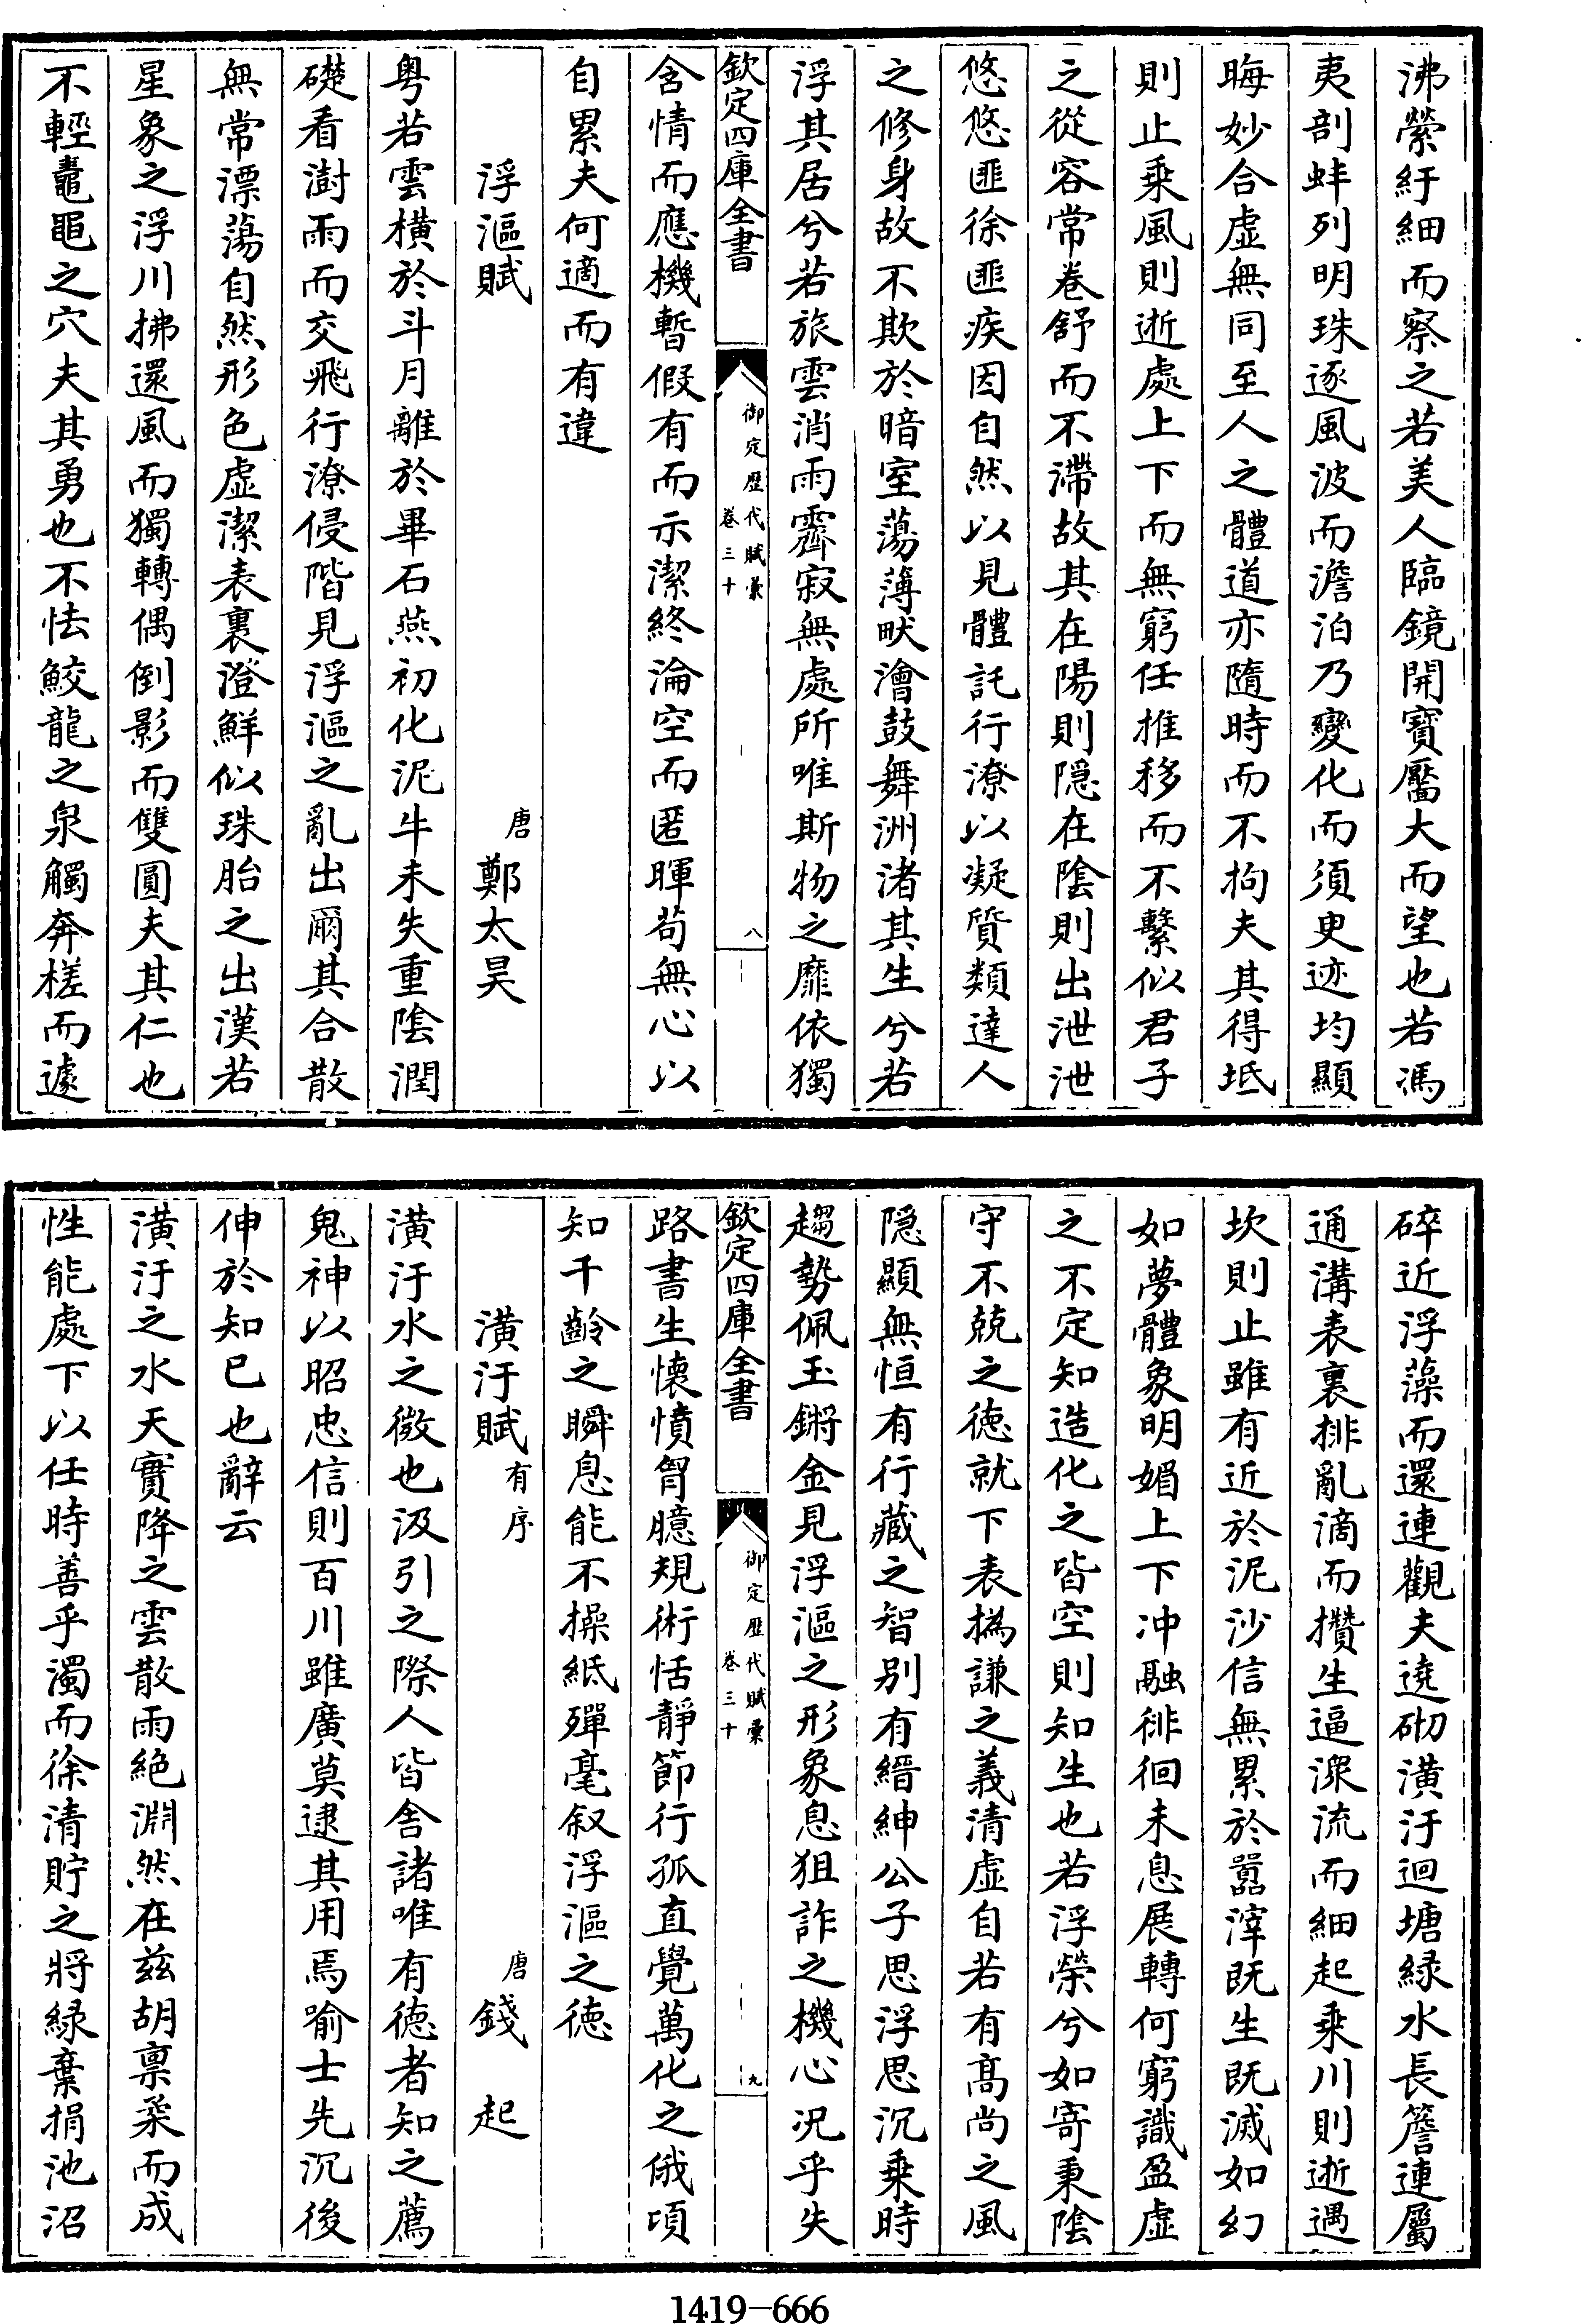 沸縈紆細而察之若美人臨鏡開寶靨大而望也若馮
夷剖蚌列明珠逐風波而澹泊乃變化而須臾迹均顯
晦妙合虛無同至人之體道亦隨時而不拘夫其得坻
則止乘風則逝處上下而無窮任推移而不繫似君子
之從容常卷舒而不滯故其在陽則隱在陰則出泄泄
悠悠匪徐匪疾因自然以見體託行潦以凝質類達人
之修身故不欺於暗室蕩薄畎澮鼓舞洲渚其生兮若
浮其居兮若旅雲消雨霽寂無處所唯斯物之靡依獨
欽定四庫全書
御定歷代賦彙
卷三十
八
含情而應機暫假有而示潔終淪空而匿暉苟無心以
自累夫何適而有違
浮漚賦
唐鄭太昊
粤若雲橫於斗月離於畢石燕初化泥牛未失重陰潤
礎看澍雨而交飛行潦侵階見浮漚之亂出爾其合散
無常漂蕩自然形色虛潔表裏澄鮮似珠胎之出漢若
星象之浮川拂還風而獨轉偶倒影而雙圓夫其仁也
不輕鼃黽之穴夫其勇也不怯鮫龍之泉觸奔槎而遽
碎近浮藻而還連觀夫遶砌潢汙迴塘緑水長簷連屬
通溝表裏排亂滴而攢生逼潨流而細起乘川則逝遇
坎則止雖有近於泥沙信無累於囂滓既生既滅如幻
如夢體象明媚上下冲融徘徊未息展轉何窮識盈虛
之不定知造化之皆空則知生也若浮榮兮如寄秉陰
守不兢之德就下表撝謙之義清虛自若有髙尚之風
隱顯無恒有行藏之智别有縉紳公子思浮思沉乘時
趨勢佩玉鏘金見浮漚之形象息狙詐之機心況乎失
欽定四庫全書
御定歷代賦彙
卷三十
九
路書生懷憤胷臆規術恬靜節行孤直覺萬化之俄頃
知千齡之瞬息能不操紙殫毫叙浮漚之德
潢汙賦有序
唐錢起
潢汙水之微也汲引之際人皆舍諸唯有德者知之薦
鬼神以昭忠信則百川雖廣莫逮其用焉喻士先沉後
伸於知已也辭云
潢汙之水天實降之雲散雨絶淵然在兹胡禀柔而成
性能處下以任時善乎濁而徐清貯之將緑棄捐池沼
1419-666